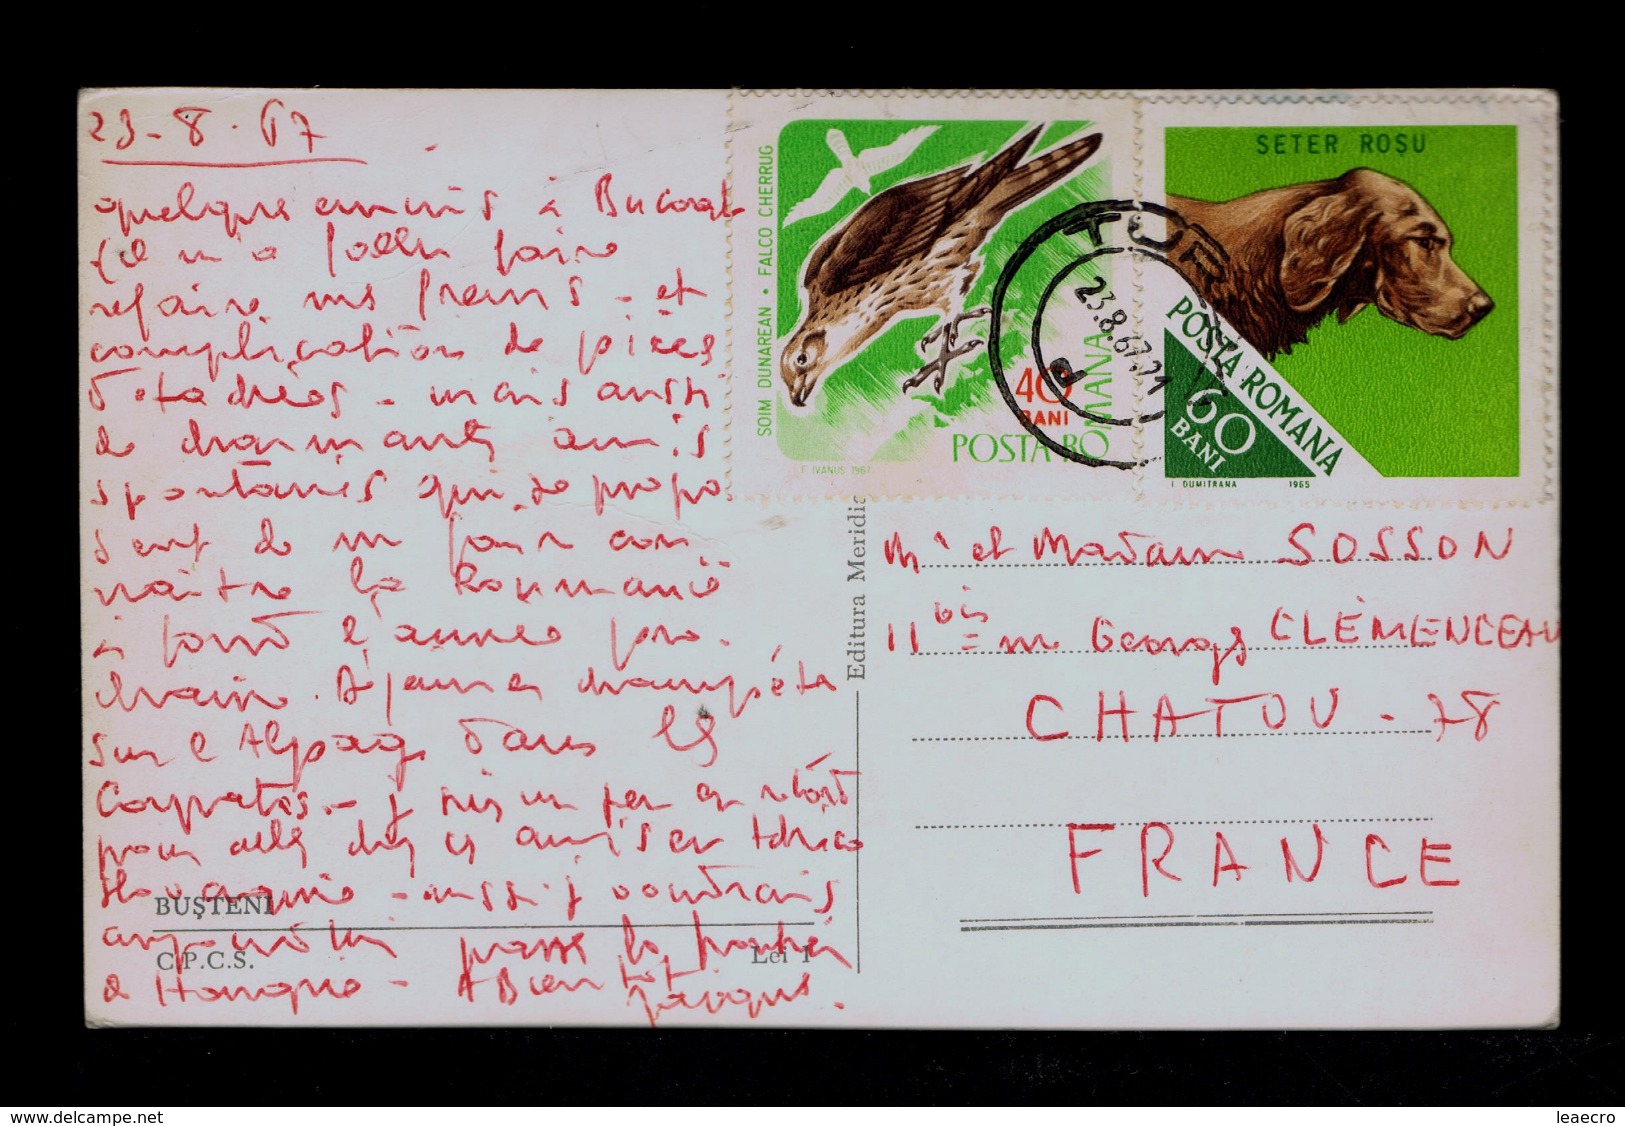 23-8-67
quelques ennuis à Bucarest
(il m'a fallu faire
refaire mes freins - et
complication de pièces
détachées - mais aussi
de charmants amis
spontanés qui se propo
sent de me faire con.
naître la Roumanie
à fond l'année pro.
chaine.
sur l'Alpage dans les
Carpates - je suis un peu en retard
pour aller chez les amis en Tchéco
slovaquie - aussi je voudrais
passer la frontière
de Hongrie - A Bientôt
Jacques.
BUȘTENI
C.P.C.S.
Lei 1
Editura Meridia
ȘOIM DUNĂREAN • FALCO CHERRUG
40
BANI
POSTA ROMANA
F. IVANUS 1967
SETER ROȘU
POSTA ROMANA
60
BANI
I. DUMITRANA 1965
23.8.67.21
Mr et Madame SOSSON
11 bis = rue Georges CLÉMENCEAU
CHATOU - 78
FRANCE
www.delcampe.net
leaecro